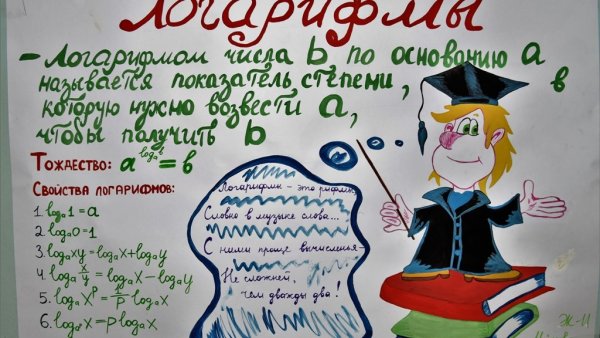 Логарифмы
– Логарифмом числа b по основанию a
называется показатель степени, в
которую нужно возвести a,
чтобы получить b
Тождество: a^logₐb = b
Свойства логарифмов:
1. logₐ1=a
2. logₐ0=1
3. logₐxy=logₐx+logₐy
4. logₐ x/y = logₐx-logₐy
5. logₐx = logₐx
6. log x=plogₐx
Логарифмы - это рифмы
Словно в музыке слова...
С ними проще вычисленья-
Не сложней,
чем дважды два!